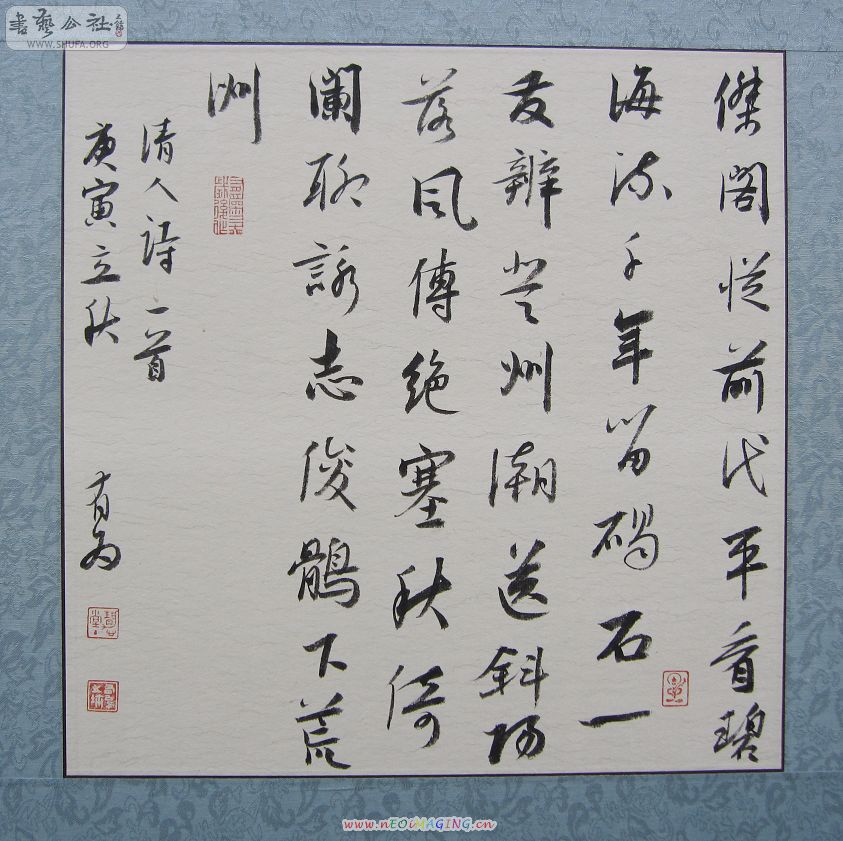 傑閣從前代平看碧
海流千年留碣石一
髮辨登州潮送斜陽
落風傳絕塞秋倚
闌聊詠志俊鶻下荒
洲
清人詩一首
庚寅立秋 有為
書藝公社
WWW.SHUFA.ORG
www.nEOiMAGING.cn